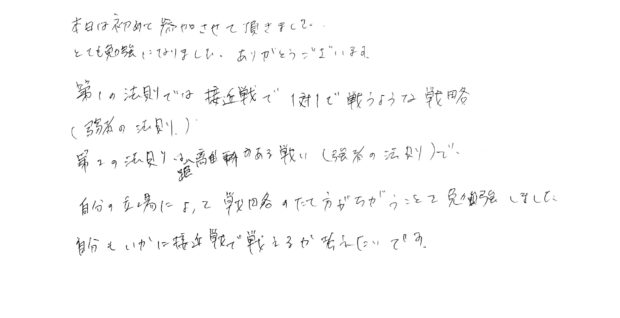 本日は初めて参加させて頂きました。
とても勉強になりました。ありがとうございます。
第1の法則では接近戦で1対1で戦うような戦略
(弱者の法則)
第2の法則は距離がある戦い(強者の法則)で、
自分の立場によって戦略のたて方がちがうことで勉強しました。
自分もいかに接近戦で戦えるか考えたいです。